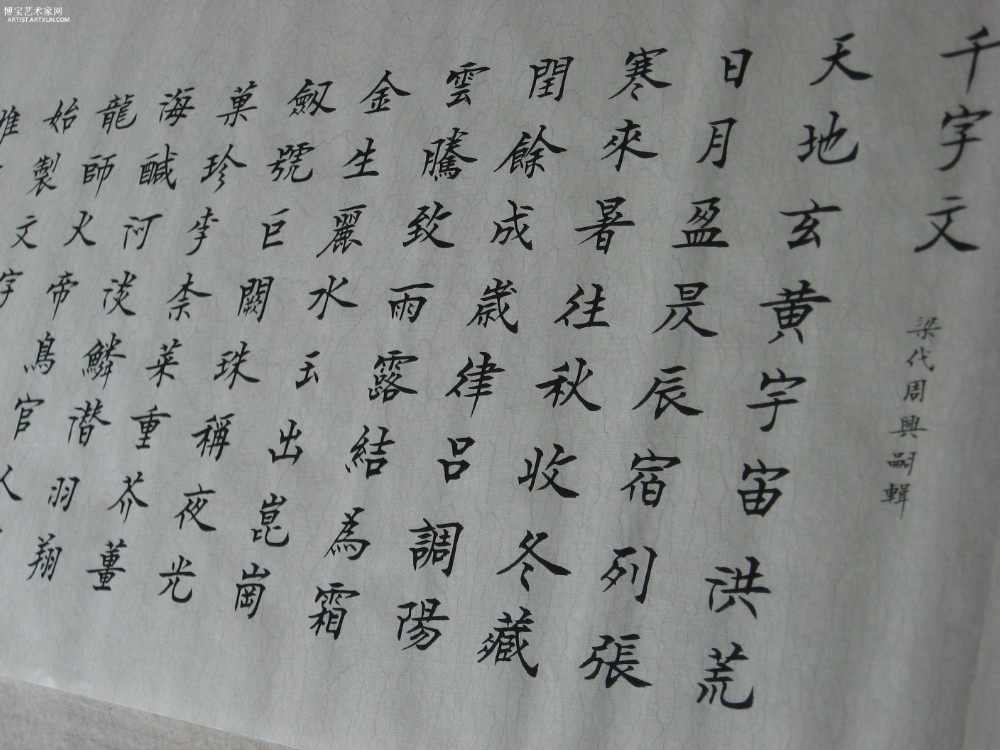 博宝艺术家网
ARTIST.ARTXUN.COM
千字文
梁代周興嗣輯
天地玄黄宇宙洪荒
日月盈昃辰宿列張
寒來暑往秋收冬藏
閏餘成歲律吕調陽
雲騰致雨露結為霜
金生麗水玉出崑崗
劔號巨闕珠稱夜光
菓珍李柰菜重芥薑
海醎河淡鱗潜羽翔
龍師火帝鳥官人
始製文字